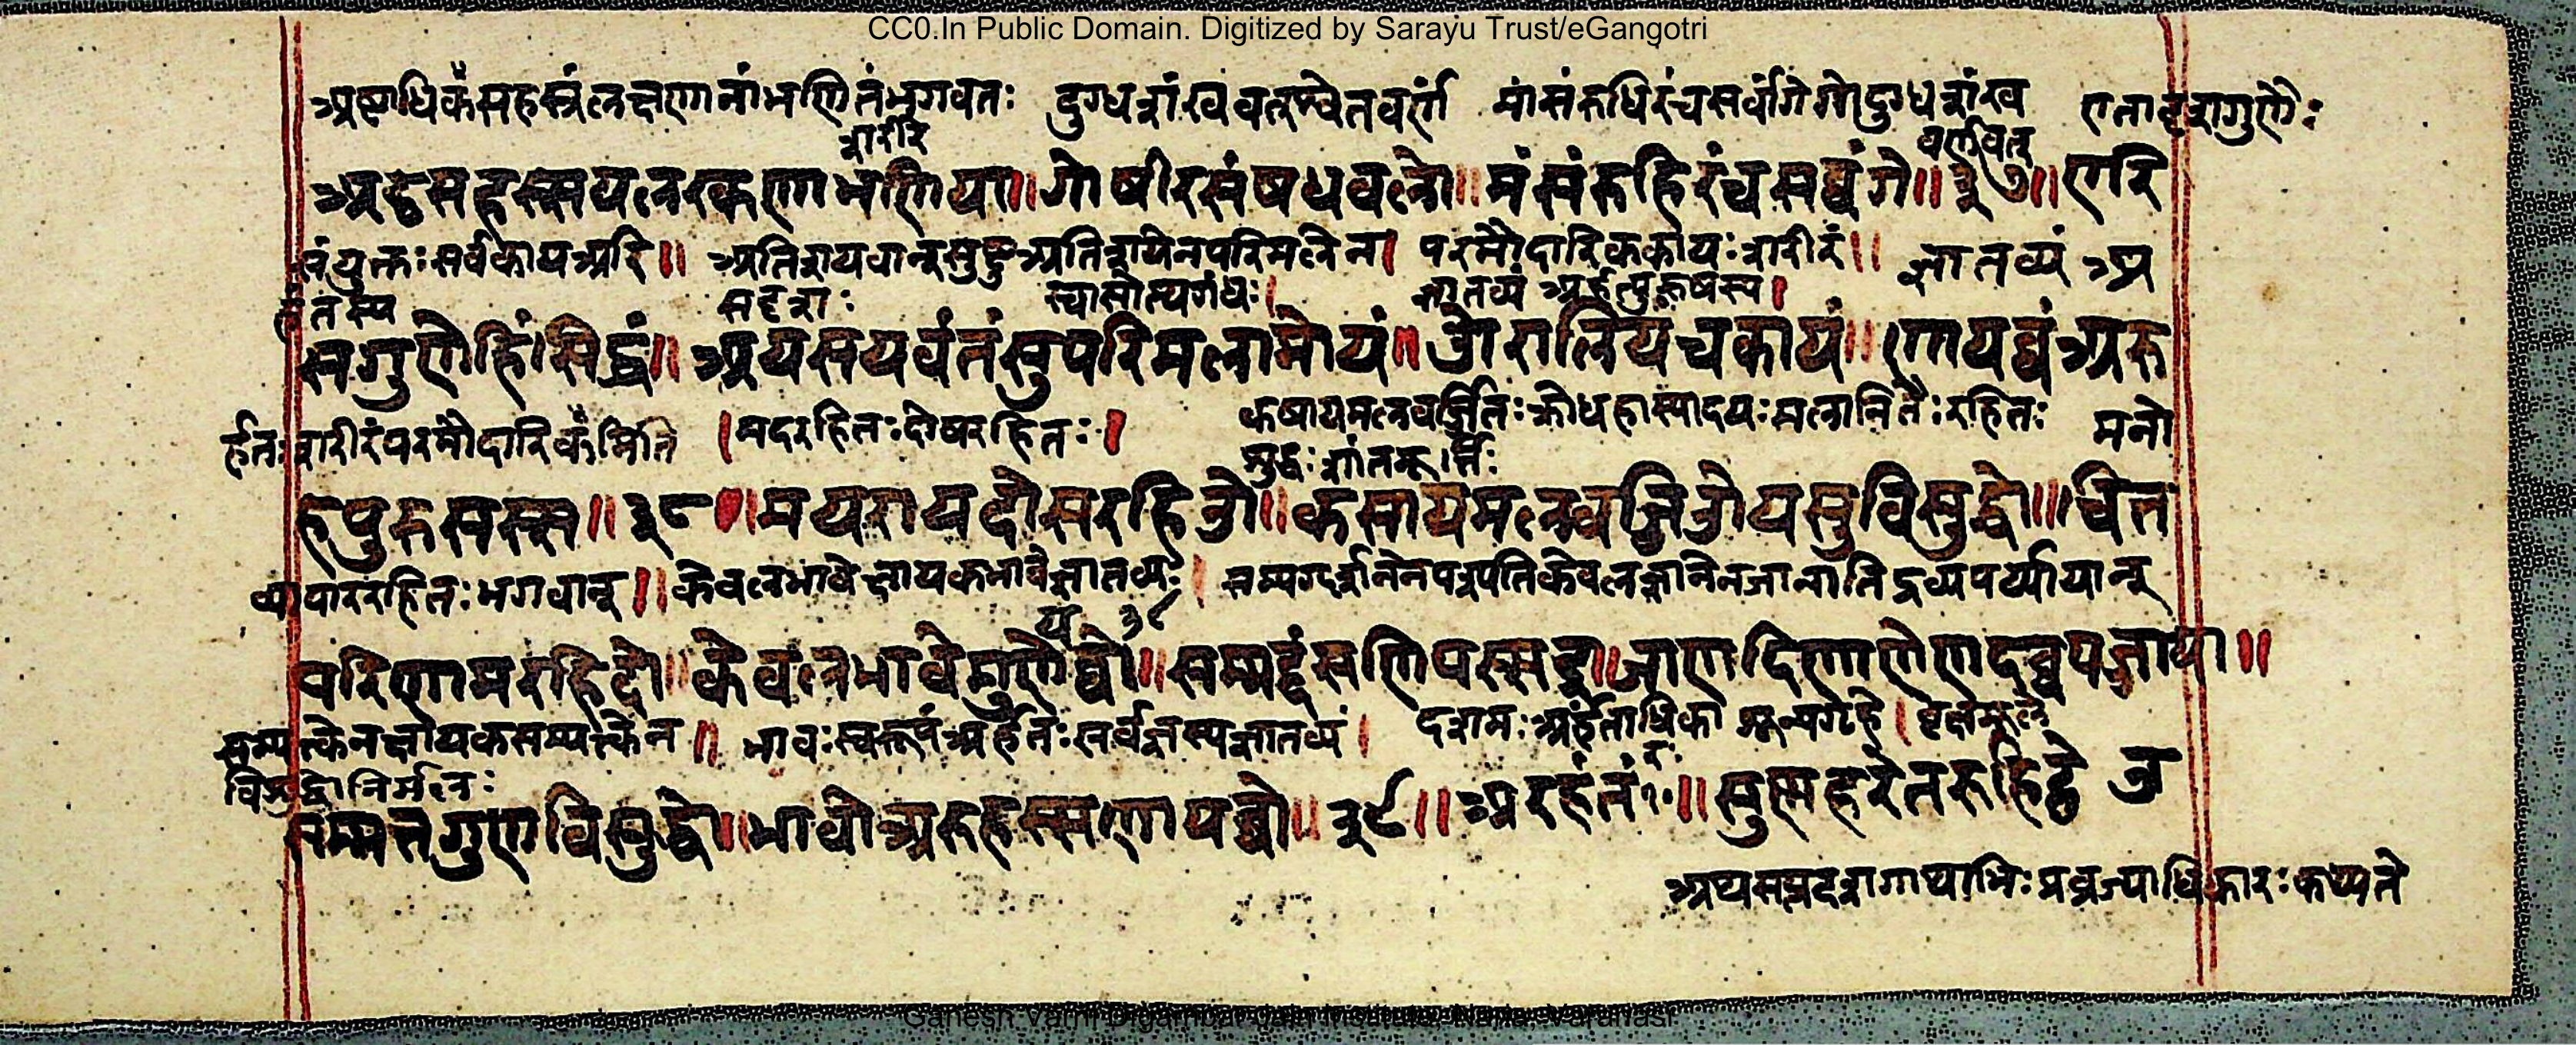 CC0.In Public Domain. Digitized by Sarayu Trust/eGangotri
अष्टाधिकंसहस्त्रंलक्षणानांभणितंभगवतः दुग्धशंखवतश्वेतवर्णं मांसंरुधिरंचसर्वांगेगोदुग्धशंख एतादृशगुणैः
शरीरे वर्णवत्
अट्ठसहस्सयलरकणभणिया॥गोषीरसंषधवलो॥मंसंरुहिरंचसव्वंगे॥३७॥एरि
संयुक्तः सर्वकायअरि॥ अतिशयवान्सुष्टुअतिशयेनपरिमलेन। परमौदारिककायःशरीरं॥ ज्ञातव्यं अ
सदृशः स्वासोत्थगंधः। ज्ञातव्यं अर्हत्पुरुषस्य।
सगुणेहिंसिद्धं॥अयसयवंतंसुपरिमलामोयं॥ओरालियचकायं॥णायव्वंअरु
र्हतःशरीरंपरमौदारिकंमिति ।मदरहितःदोषरहितः। कषायमलवर्जितःक्रोधहास्यादयःमलानितैःरहितः मनो
शुद्धःशांतमूर्त्तिः
हपुरुसस्स॥३८॥मयरायदोसरहिओ॥कसायमलवज्जिओयसुविसुद्धो॥चित
व्यापाररहितःभगवान्॥केवलभावेक्षायकभावेज्ञातव्यः। सम्यग्दर्शनेनपश्यतिकेवलज्ञानेनजानातिद्रव्यपर्य्यायान्
परिणामरहिदो॥केवलभावेमुणेयव्वो॥सम्मद्दंसणिपस्सइ॥जाणदिणाणेणदव्वपज्जाया॥
सम्यक्त्केनक्षायकसम्यक्त्केन॥ भावःस्वरूपंअर्हतःसर्वज्ञस्यज्ञातव्यं। दशमःअर्हताधिका शून्यगृहे।
विशुद्धोनिर्मलः
सम्मत्तगुणविसुद्धो॥भावोअरुहस्सणायव्वो॥३९॥अरहंतं१०॥सुस्महरेतरुहिट्ठे उ
अथसप्तदशगाथाभिःप्रव्रज्याधिकारःकथ्यते
Ganesh Varni Digambar Jain Institute, Naria, Varanasi